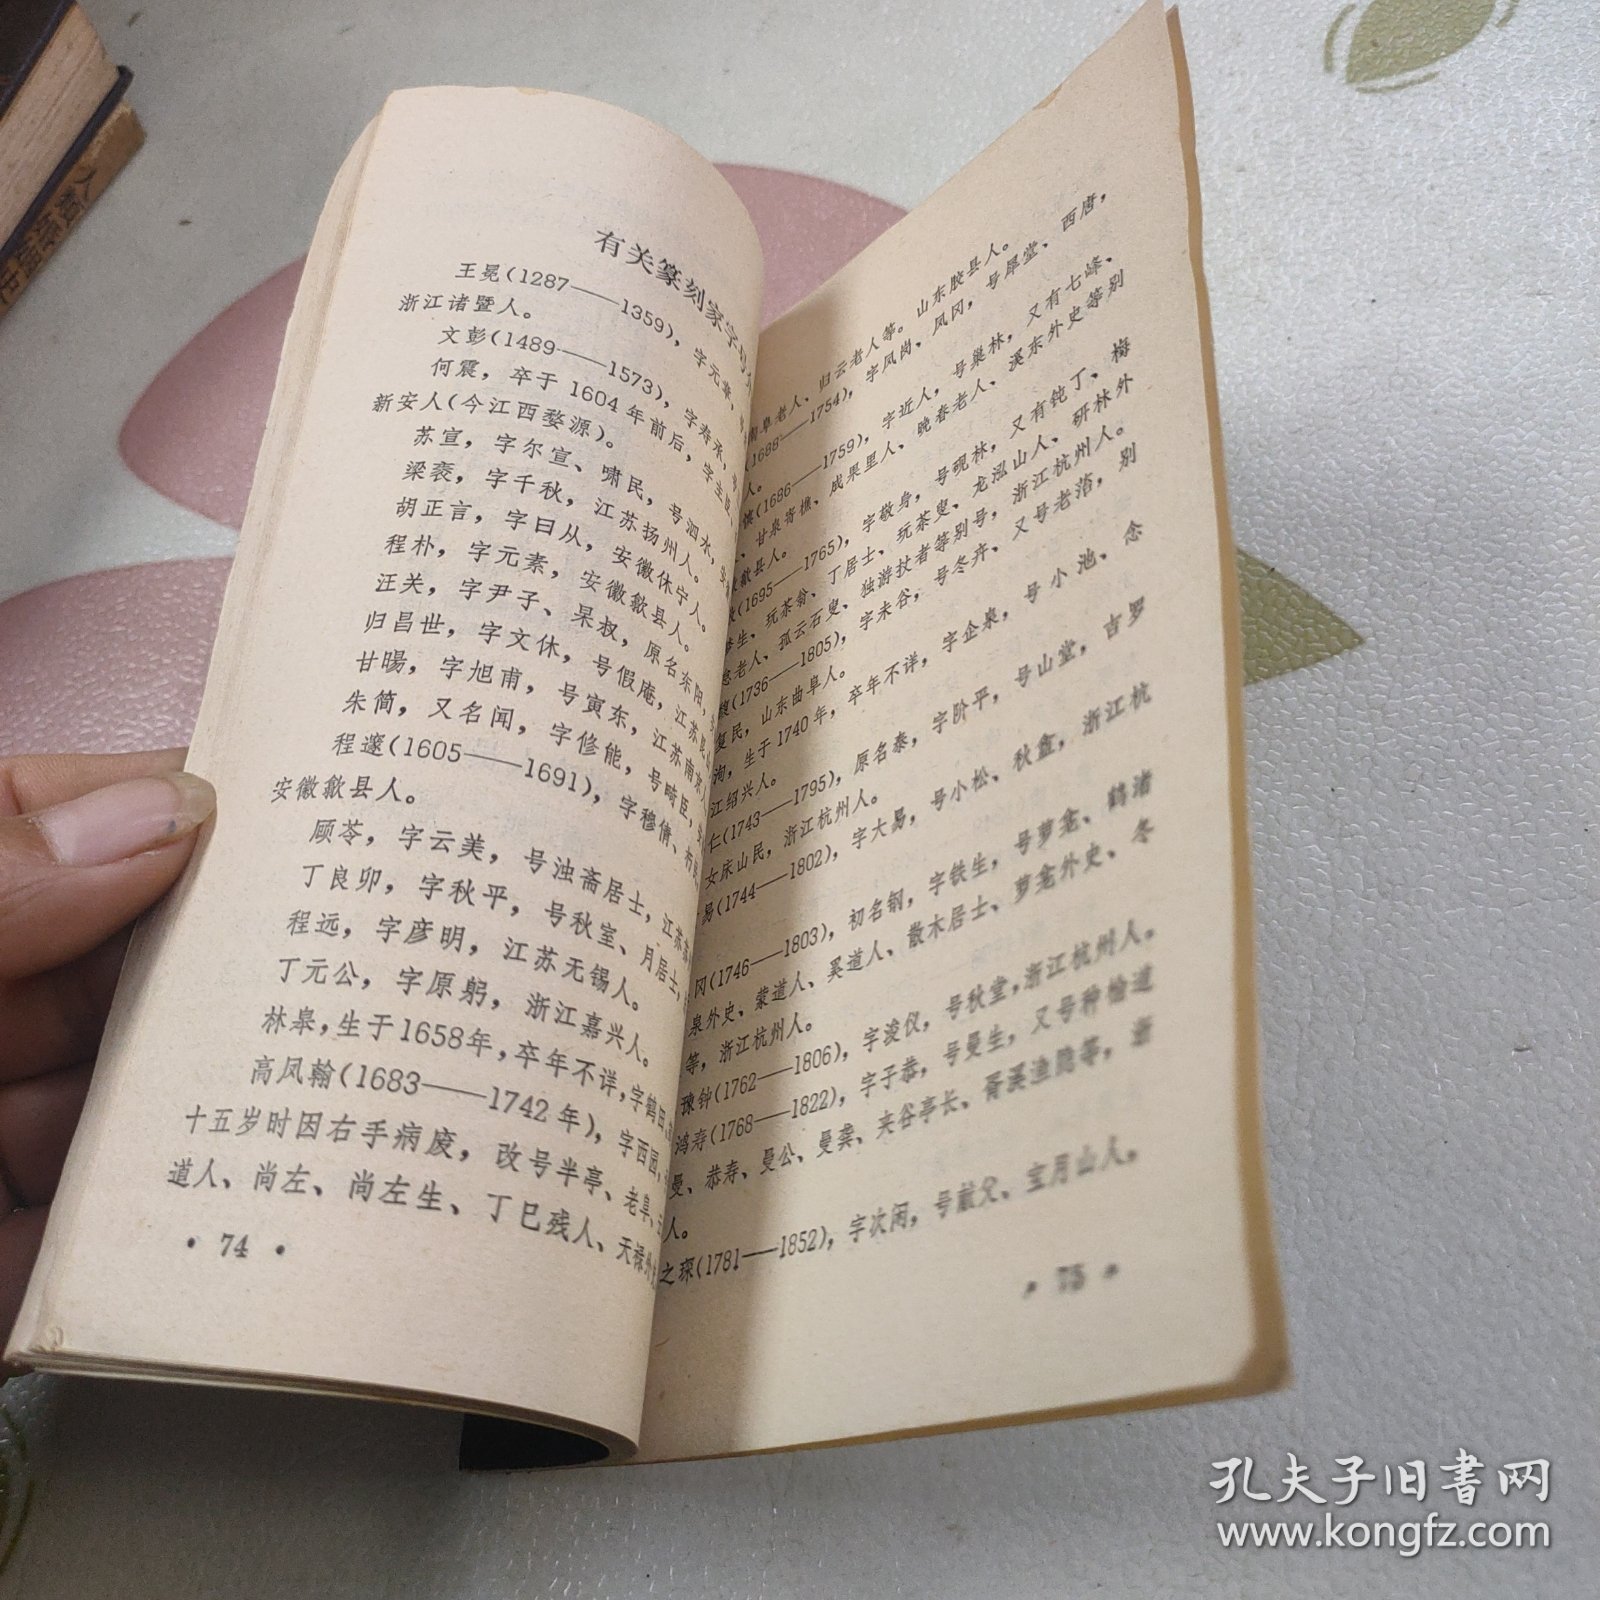 有关篆刻家字号
王冕(1287——1359)，字元章，
浙江诸暨人。
文彭(1489——1573)，字寿承，
何震，卒于1604年前后，字主臣，
新安人(今江西婺源)。
苏宣，字尔宣、啸民，号泗水，
梁袠，字千秋，江苏扬州人。
胡正言，字曰从，安徽休宁人。
程朴，字元素，安徽歙县人。
汪关，字尹子、杲叔，原名东阳，
归昌世，字文休，号假庵，江苏昆
甘旸，字旭甫，号寅东，江苏南京
朱简，又名闻，字修能，号畸臣，
程邃(1605——1691)，字穆倩、
安徽歙县人。
顾苓，字云美，号浊斋居士，江苏
丁良卯，字秋平，号秋室、月居士，
程远，字彦明，江苏无锡人。
丁元公，字原躬，浙江嘉兴人。
林皋，生于1658年，卒年不详，字鹤田，
高凤翰(1683——1742年)，字西园，
十五岁时因右手病废，改号半亭、老阜、
道人、尚左、尚左生、丁巳残人、天禄外
· 74 ·
南阜老人、归云老人等。山东胶县人。
(1688——1754)，字风岗、凤冈，号犀堂、西唐，
人。
(1686——1759)，字近人，号巢林，又有七峰、
、甘泉寄樵、成果里人、晚春老人、溪东外史等别
歙县人。
(1695——1765)，字敬身，号砚林，又有钝丁、梅
修生、玩茶翁、丁居士、玩茶叟、龙泓山人、研林外
老人、孤云石叟、独游技者等别号，浙江杭州人。
(1736——1805)，字未谷，号冬卉、又号老菭，别
复民，山东曲阜人。
洵，生于1740年，卒年不详，字企泉，号小池、念
江绍兴人。
仁(1743——1795)，原名泰，字阶平，号山堂，吉罗
女床山民，浙江杭州人。
易(1744——1802)，字大易，号小松、秋盦，浙江杭
冈(1746——1803)，初名钢，字铁生，号萝龛、鹤渚
泉外史、蒙道人、奚道人、散木居士、萝龛外史、冬
等，浙江杭州人。
豫钟(1762——1806)，字浚仪，号秋堂，浙江杭州人。
鸿寿(1768——1822)，字子恭，号曼生，又号种榆道
曼、恭寿、曼公、曼龚、夹谷亭长、胥溪渔隐等，浙
人。
之琛(1781——1852)，字次闲，号献父、宝月山人。
· 75 ·
孔夫子旧书网
www.kongfz.com